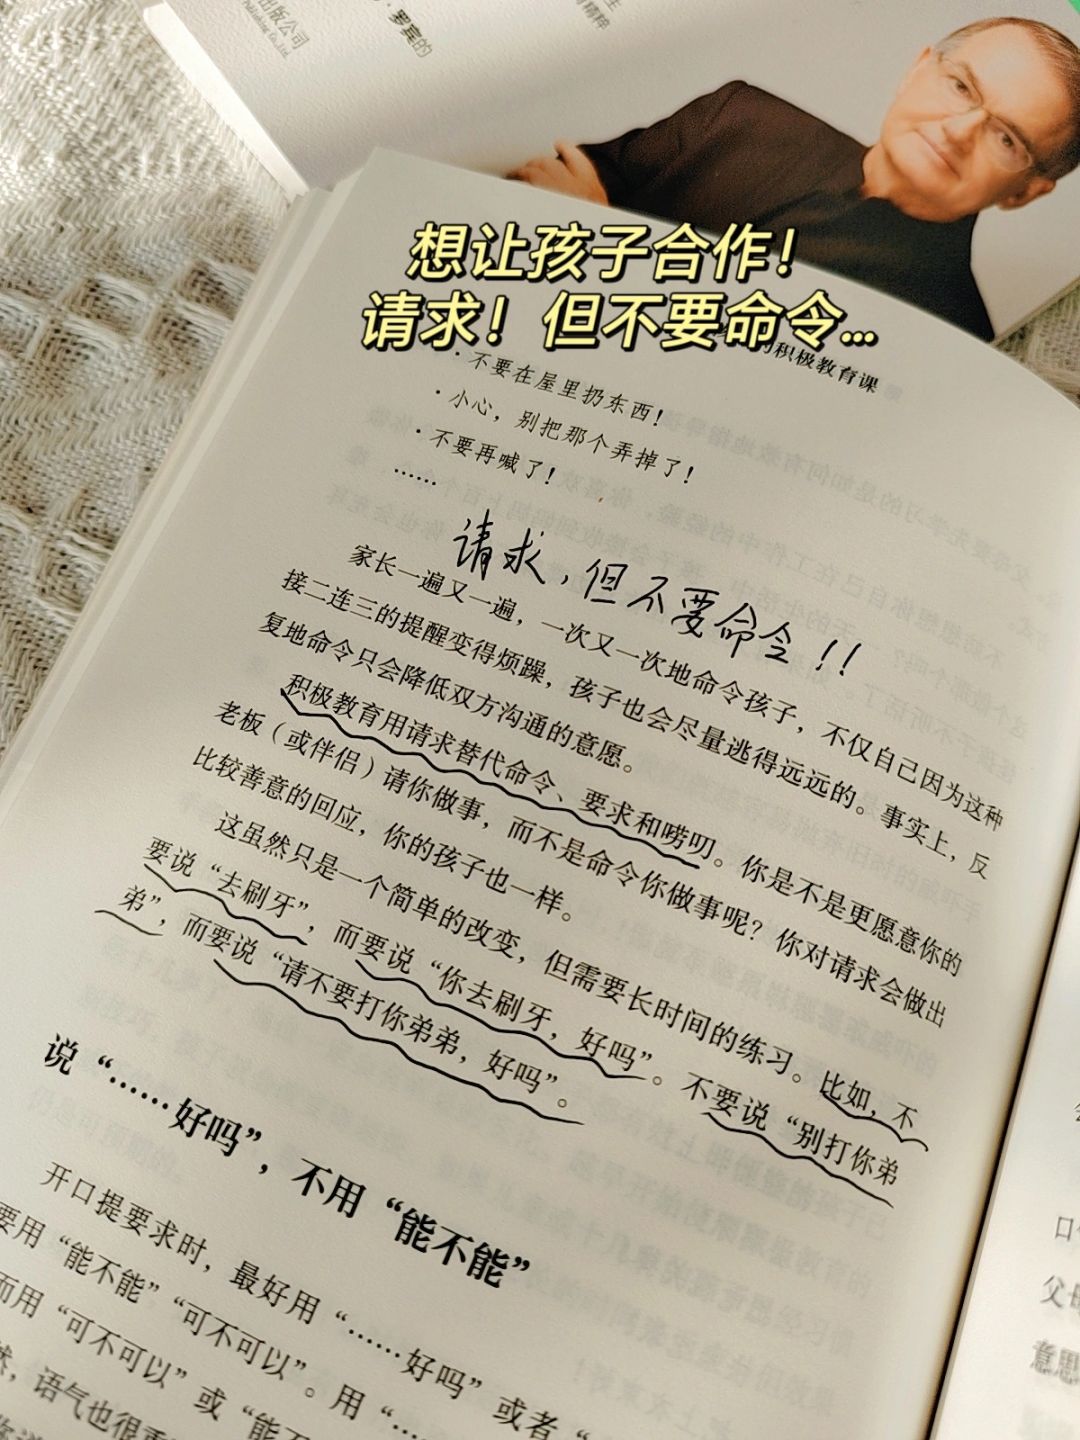 出版公司
Publishing Co.,Ltd.
·罗宾的
想让孩子合作！
请求！但不要命令...
的积极教育课
·不要在屋里扔东西！
·小心，别把那个弄掉了！
·不要再喊了！
……
请求，但不要命令！！
家长一遍又一遍，一次又一次地命令孩子，不仅自己因为这种
接二连三的提醒变得烦躁，孩子也会尽量逃得远远的。事实上，反
复地命令只会降低双方沟通的意愿。
积极教育用请求替代命令、要求和唠叨。你是不是更愿意你的
老板（或伴侣）请你做事，而不是命令你做事呢？你对请求会做出
比较善意的回应，你的孩子也一样。
这虽然只是一个简单的改变，但需要长时间的练习。比如，不
要说“去刷牙”，而要说“你去刷牙，好吗”。不要说“别打你弟
弟”，而要说“请不要打你弟弟，好吗”。
说“……好吗”，不用“能不能”
开口提要求时，最好用“……好吗”或者“
要用“能不能”“可不可以”。用“……
而用“可不可以”或“能不
然，语气也很重
口
父母
意思